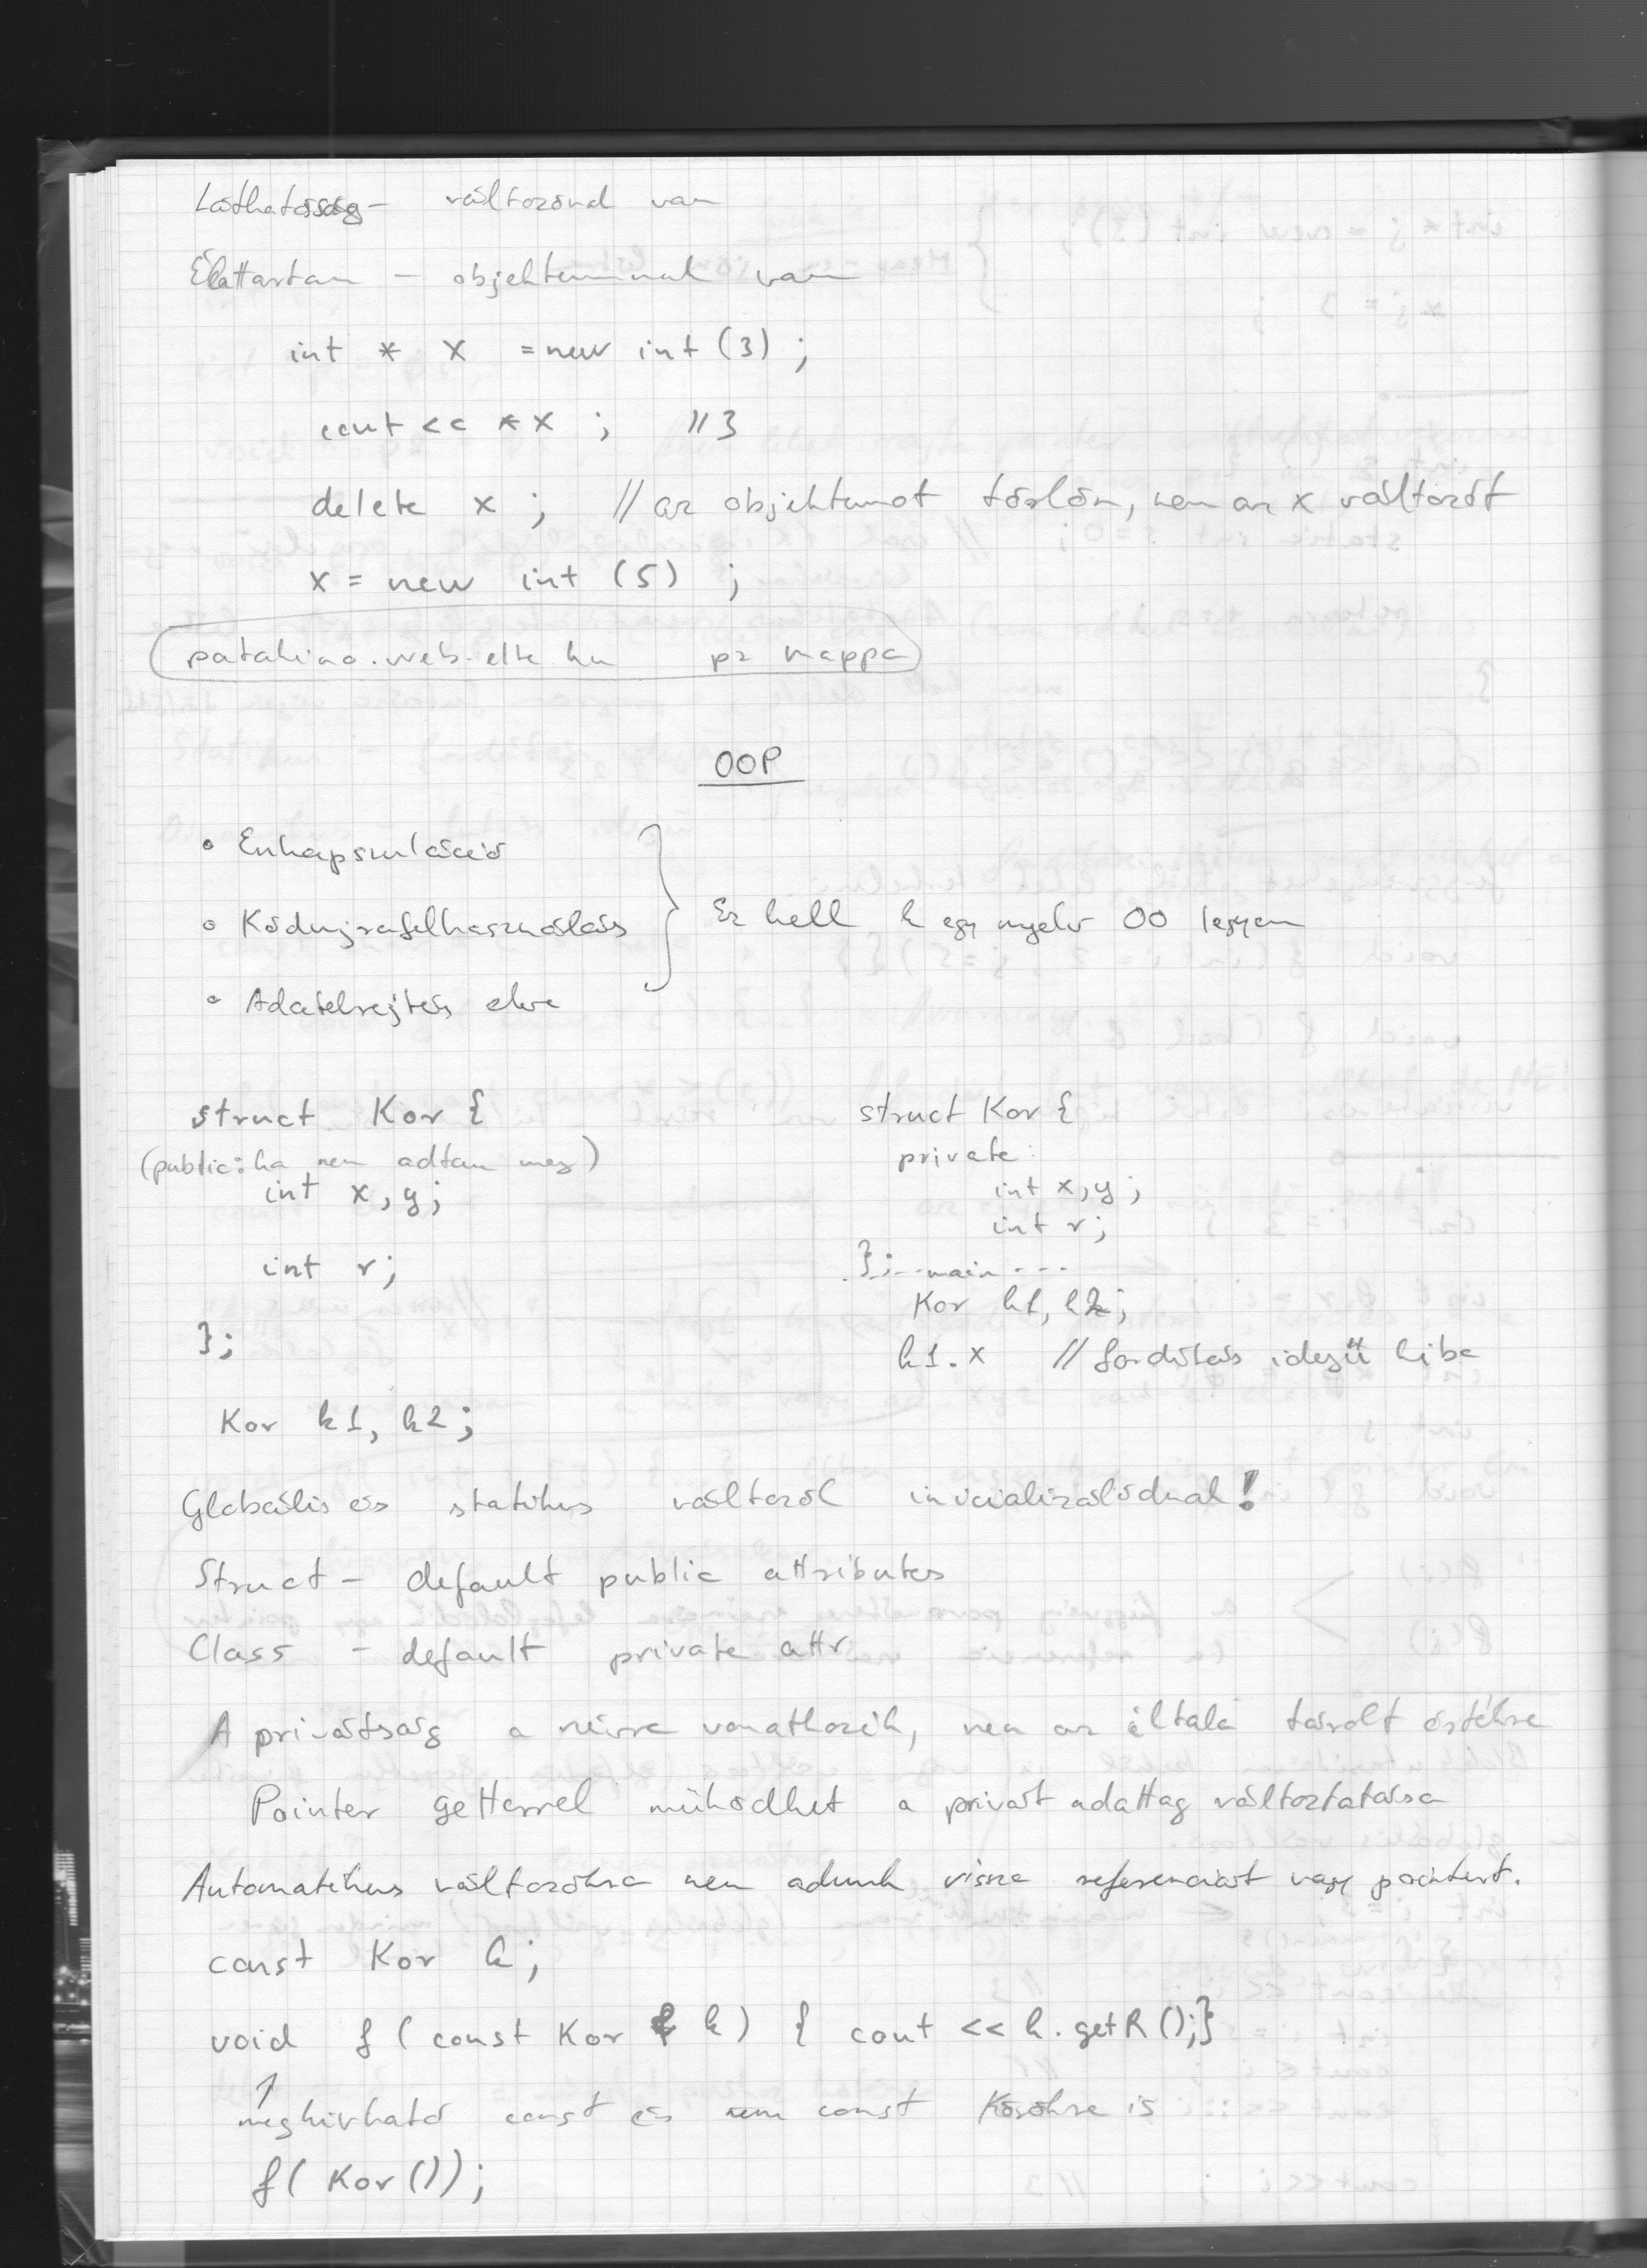 Láthatóság – változónál van
Élettartam – objektumnak van
int * x = new int (3) ;
cout << *x ; // 3
delete x ; // az objektumot törlöm, nem az x változót
x = new int (5) ;
patakino.web.elte.hu pz mappa
OOP
• Enkapszuláció
• Kódújrafelhasználás
• Adatelrejtés elve
Ez kell h egy nyelv OO legyen
struct Kor {
(public: ha nem adtam meg)
int x, y;
int r;
};
Kor k1, k2;
struct Kor {
private:
int x, y;
int r;
}; ... main ...
Kor k1, k2;
k1.x // fordítás idejű hiba
Globális és statikus változók inicializálódnak!
Struct – default public attributes
Class – default private attr
A privátság a névre vonatkozik, nem az általa tárolt értékre
Pointer getterrel működhet a privát adattag változtatása
Automatikus változókra nem adunk vissza referenciát vagy pointert.
const Kor k;
void f ( const Kor & k) { cout << k.getR();}
↑
meghívható const és nem const Körökre is
f( Kor());